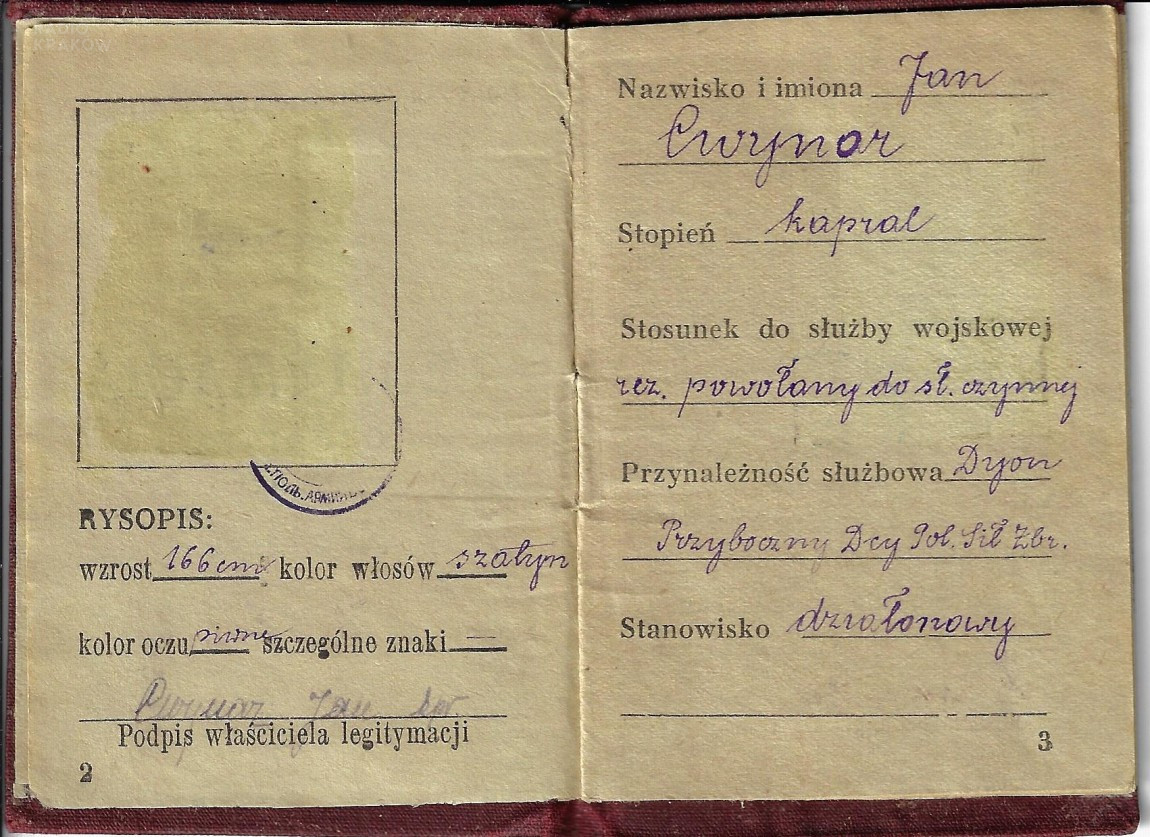 KRAKÓW
ПОЛЬ. АРМИИ
RYSOPIS:
wzrost 166 cm kolor włosów szatyn
kolor oczu piwne szczególne znaki —
Cwynar Jan kpr
Podpis właściciela legitymacji
2
Nazwisko i imiona Jan
Cwynar
Stopień kapral
Stosunek do służby wojskowej
rez. powołany do sł. czynnej
Przynależność służbowa Dyon
Przyboczny Dcy Pol. Sił Zbr.
Stanowisko działonowy
3